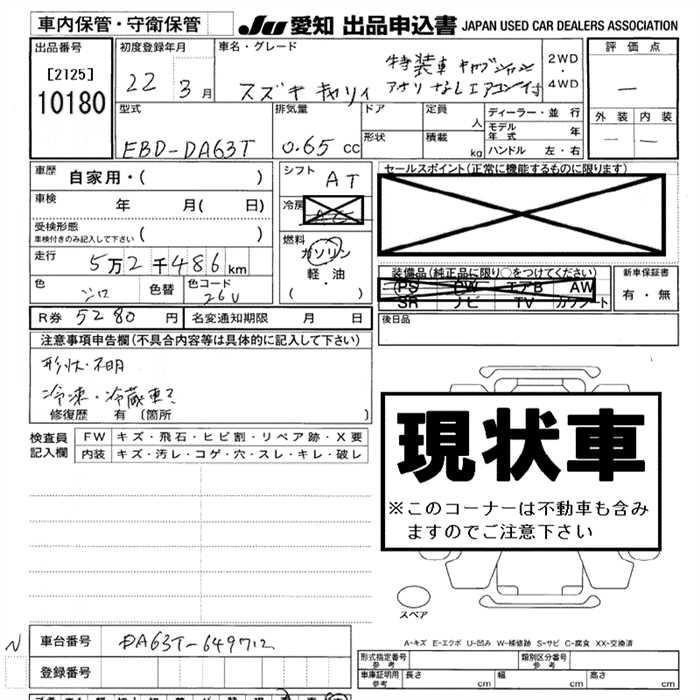 車内保管・守衛保管
JU 愛知 出品申込書 JAPAN USED CAR DEALERS ASSOCIATION
出品番号
[2125]
10180
初度登録年月
22 3月
車名・グレード
スズキ キャリィ
特装車 キャブシャシ
アオリなしエアコン付
2WD
・
4WD
評価点
—
外装 内装
— —
型式
EBD-DA63T
排気量
0.65 cc
ドア
形状
定員
人
積載
kg
ディーラー・並行
モデル年式 年
ハンドル 左・右
車歴
自家用・( )
車検
年 月( 日)
受検形態
車検付きのみ記入して下さい ( )
走行
5万2千486km
色
シロ
色替
色コード
26U
シフト
AT
冷房
AC
燃料
ガソリン
軽・油
( ・ )
セールスポイント(正常に機能するものに限ります)
装備品(純正品に限り○をつけてください)
PS PW エアB AW
SR ナビ TV カワシート
新車保証書
有・無
R券 5280 円
名変通知期限 月 日
後日品
注意事項申告欄(不具合内容等は具体的に記入して下さい)
形状・不明
冷凍・冷蔵車
修復歴 有 (箇所 )
検査員
記入欄
FW キズ・飛石・ヒビ割・リペア跡・X要
内装 キズ・汚レ・コゲ・穴・スレ・キレ・破レ
現状車
※このコーナーは不動車も含み
ますのでご注意下さい
スペア
A-キズ E-エクボ U-凹み W-補修跡 S-サビ C-腐食 XX-交換済
N
車台番号
DA63T-649712
登録番号
形式指定番号
参考
類別区分番号
参考
車庫証明用
参考
長さ cm 幅 cm 高さ cm